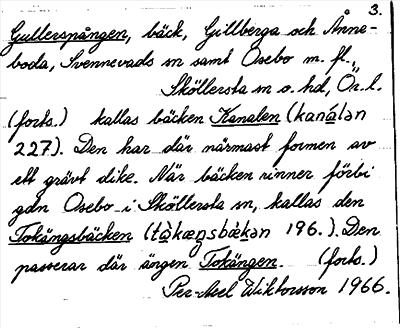 3.
Gullerspången, bäck, Gillberga och Ånne-
boda, Svennevads sn samt Osebo m. fl.,
Sköllersta sn o. hd, Ör. l.
(forts.) kallas bäcken Kanalen (kanálən
227). Den har där närmast formen av
ett grävt dike. När bäcken rinner förbi
gdn Osebo i Sköllersta sn, kallas den
Tokängsbäcken 196.). Den
passerar där ängen Tokängen. (forts.)
Per-Axel Wiktorsson 1966.